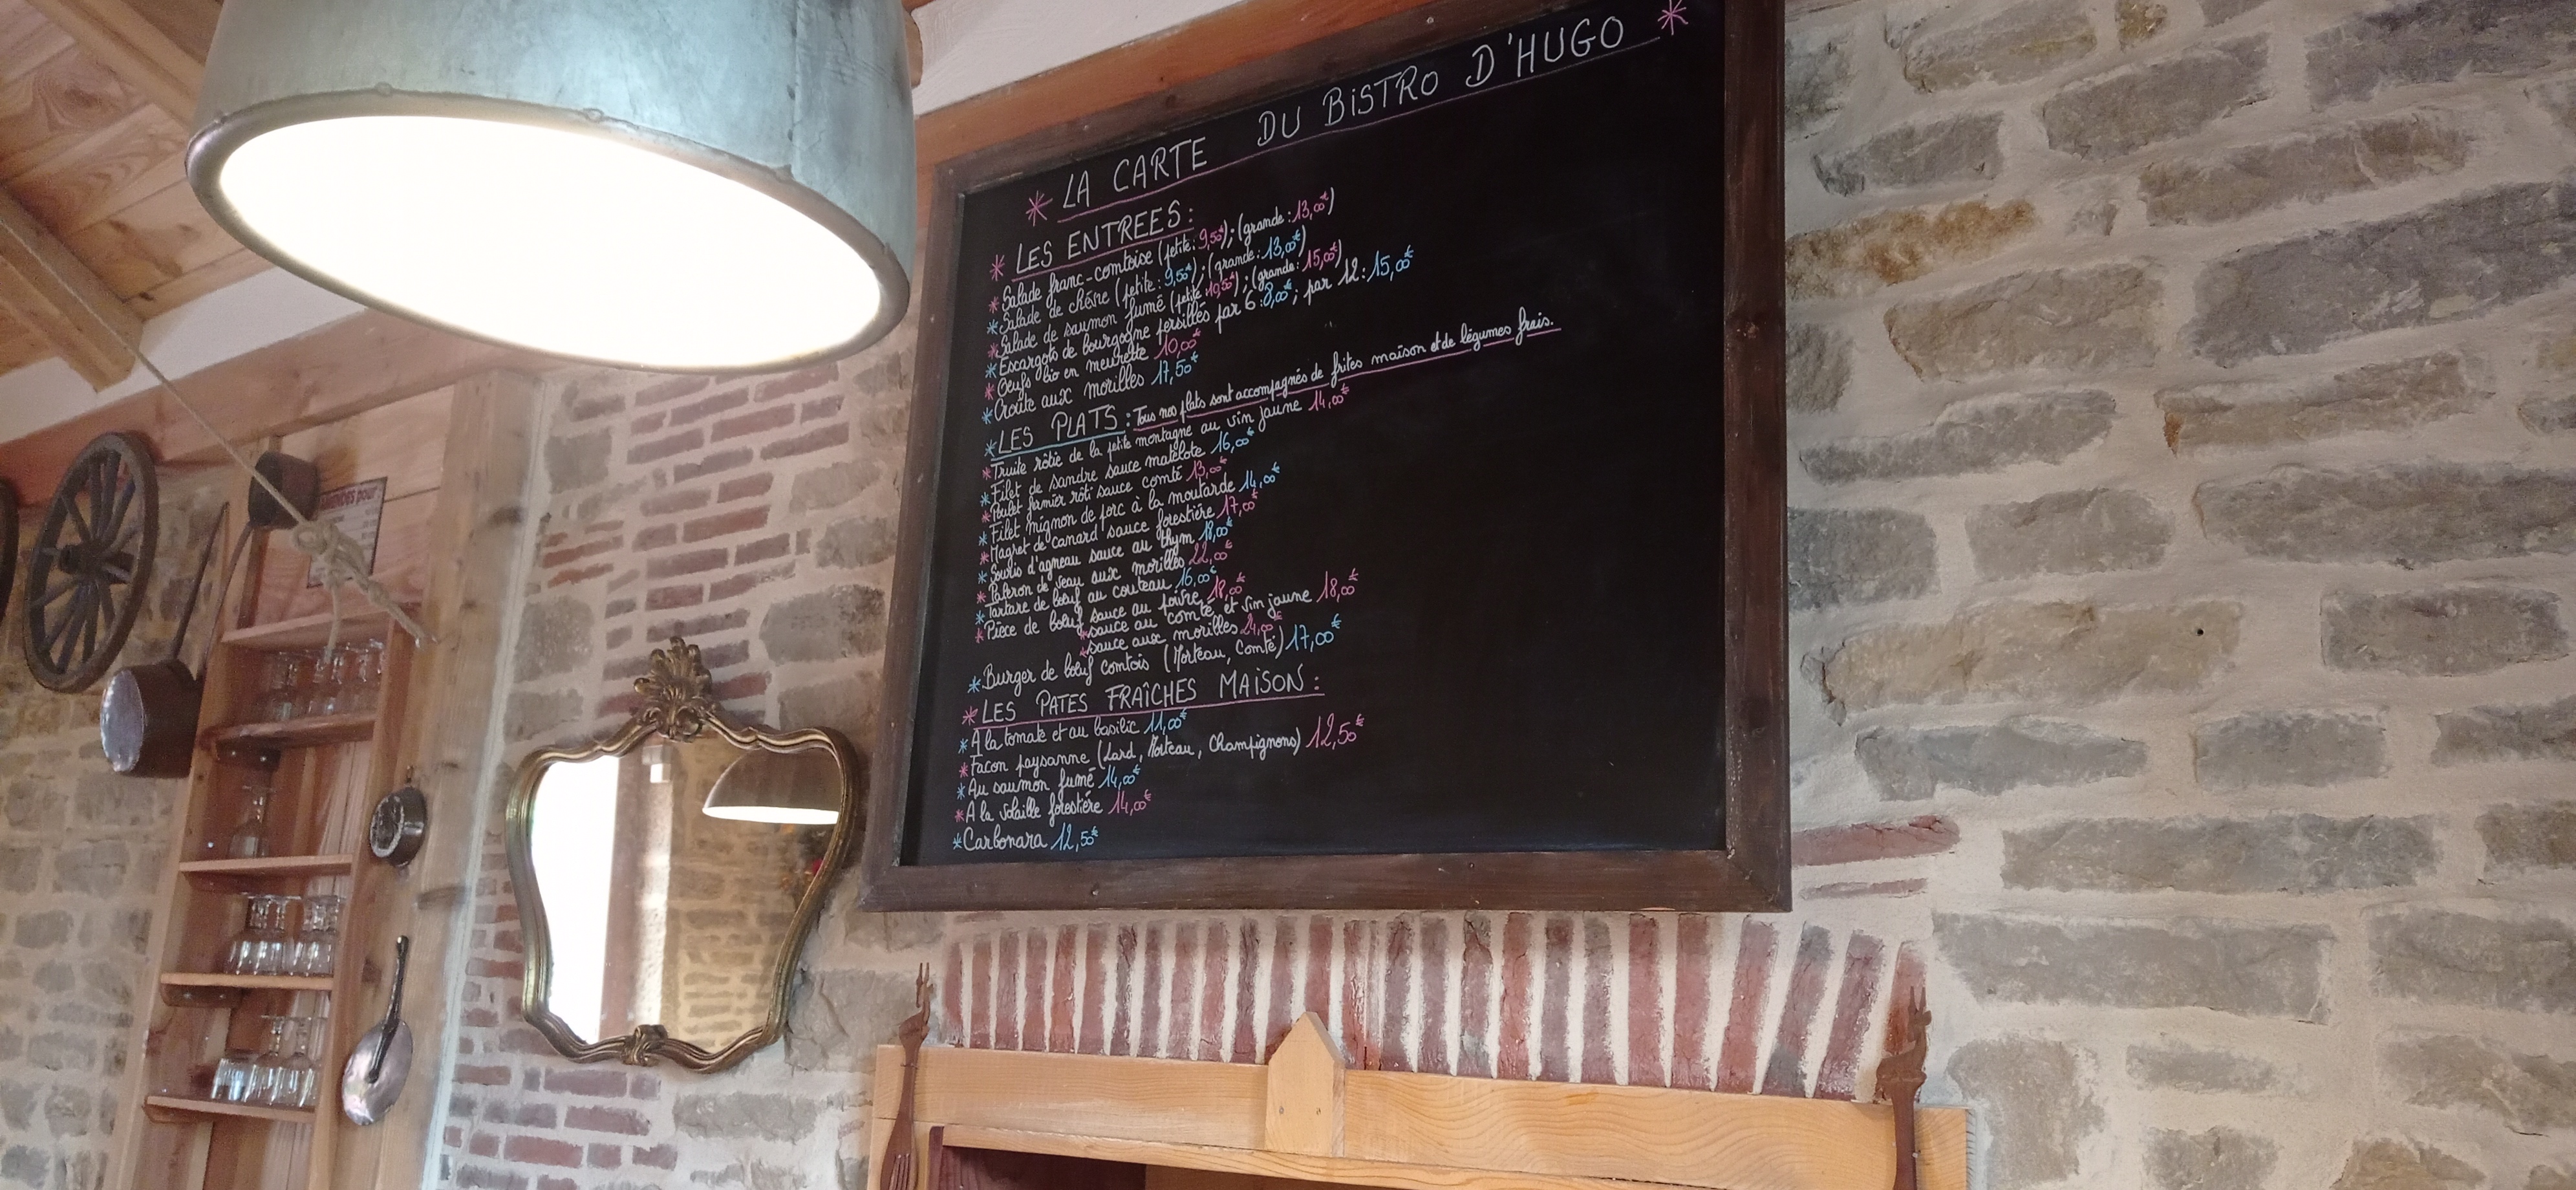 LA CARTE DU BISTRO D'HUGO
LES ENTREES :
Salade franc-comtoise (petite : 9,50€) ; (grande : 13,00€)
Salade de chèvre (petite : 9,50€) ; (grande : 13,00€)
Salade de saumon fumé (petite : 10,50€) ; (grande : 15,00€)
Escargots de bourgogne persillés par 6 : 8,00€ ; par 12 : 15,00€
Oeufs bio en meurette 10,00€
Croûte aux morilles 17,50€
LES PLATS : Tous nos plats sont accompagnés de frites maison et de légumes frais.
Truite rôtie de la petite montagne au vin jaune 14,00€
Filet de sandre sauce matelote 16,00€
Poulet fermier rôti sauce comté 13,00€
Filet mignon de porc à la moutarde 14,00€
Magret de canard sauce forestière 17,00€
Souris d'agneau sauce au thym 18,00€
Paleron de veau aux morilles 22,00€
Tartare de bœuf au couteau 16,00€
Pièce de bœuf sauce au poivre 18,00€
sauce au comté et vin jaune 18,00€
sauce aux morilles 24,00€
Burger de bœuf comtois (Morteau, Comté) 17,00€
LES PATES FRAÎCHES MAISON :
A la tomate et au basilic 11,00€
Facon paysanne (Lard, Morteau, Champignons) 12,50€
Au saumon fumé 14,00€
A la volaille forestière 14,00€
Carbonara 12,50€